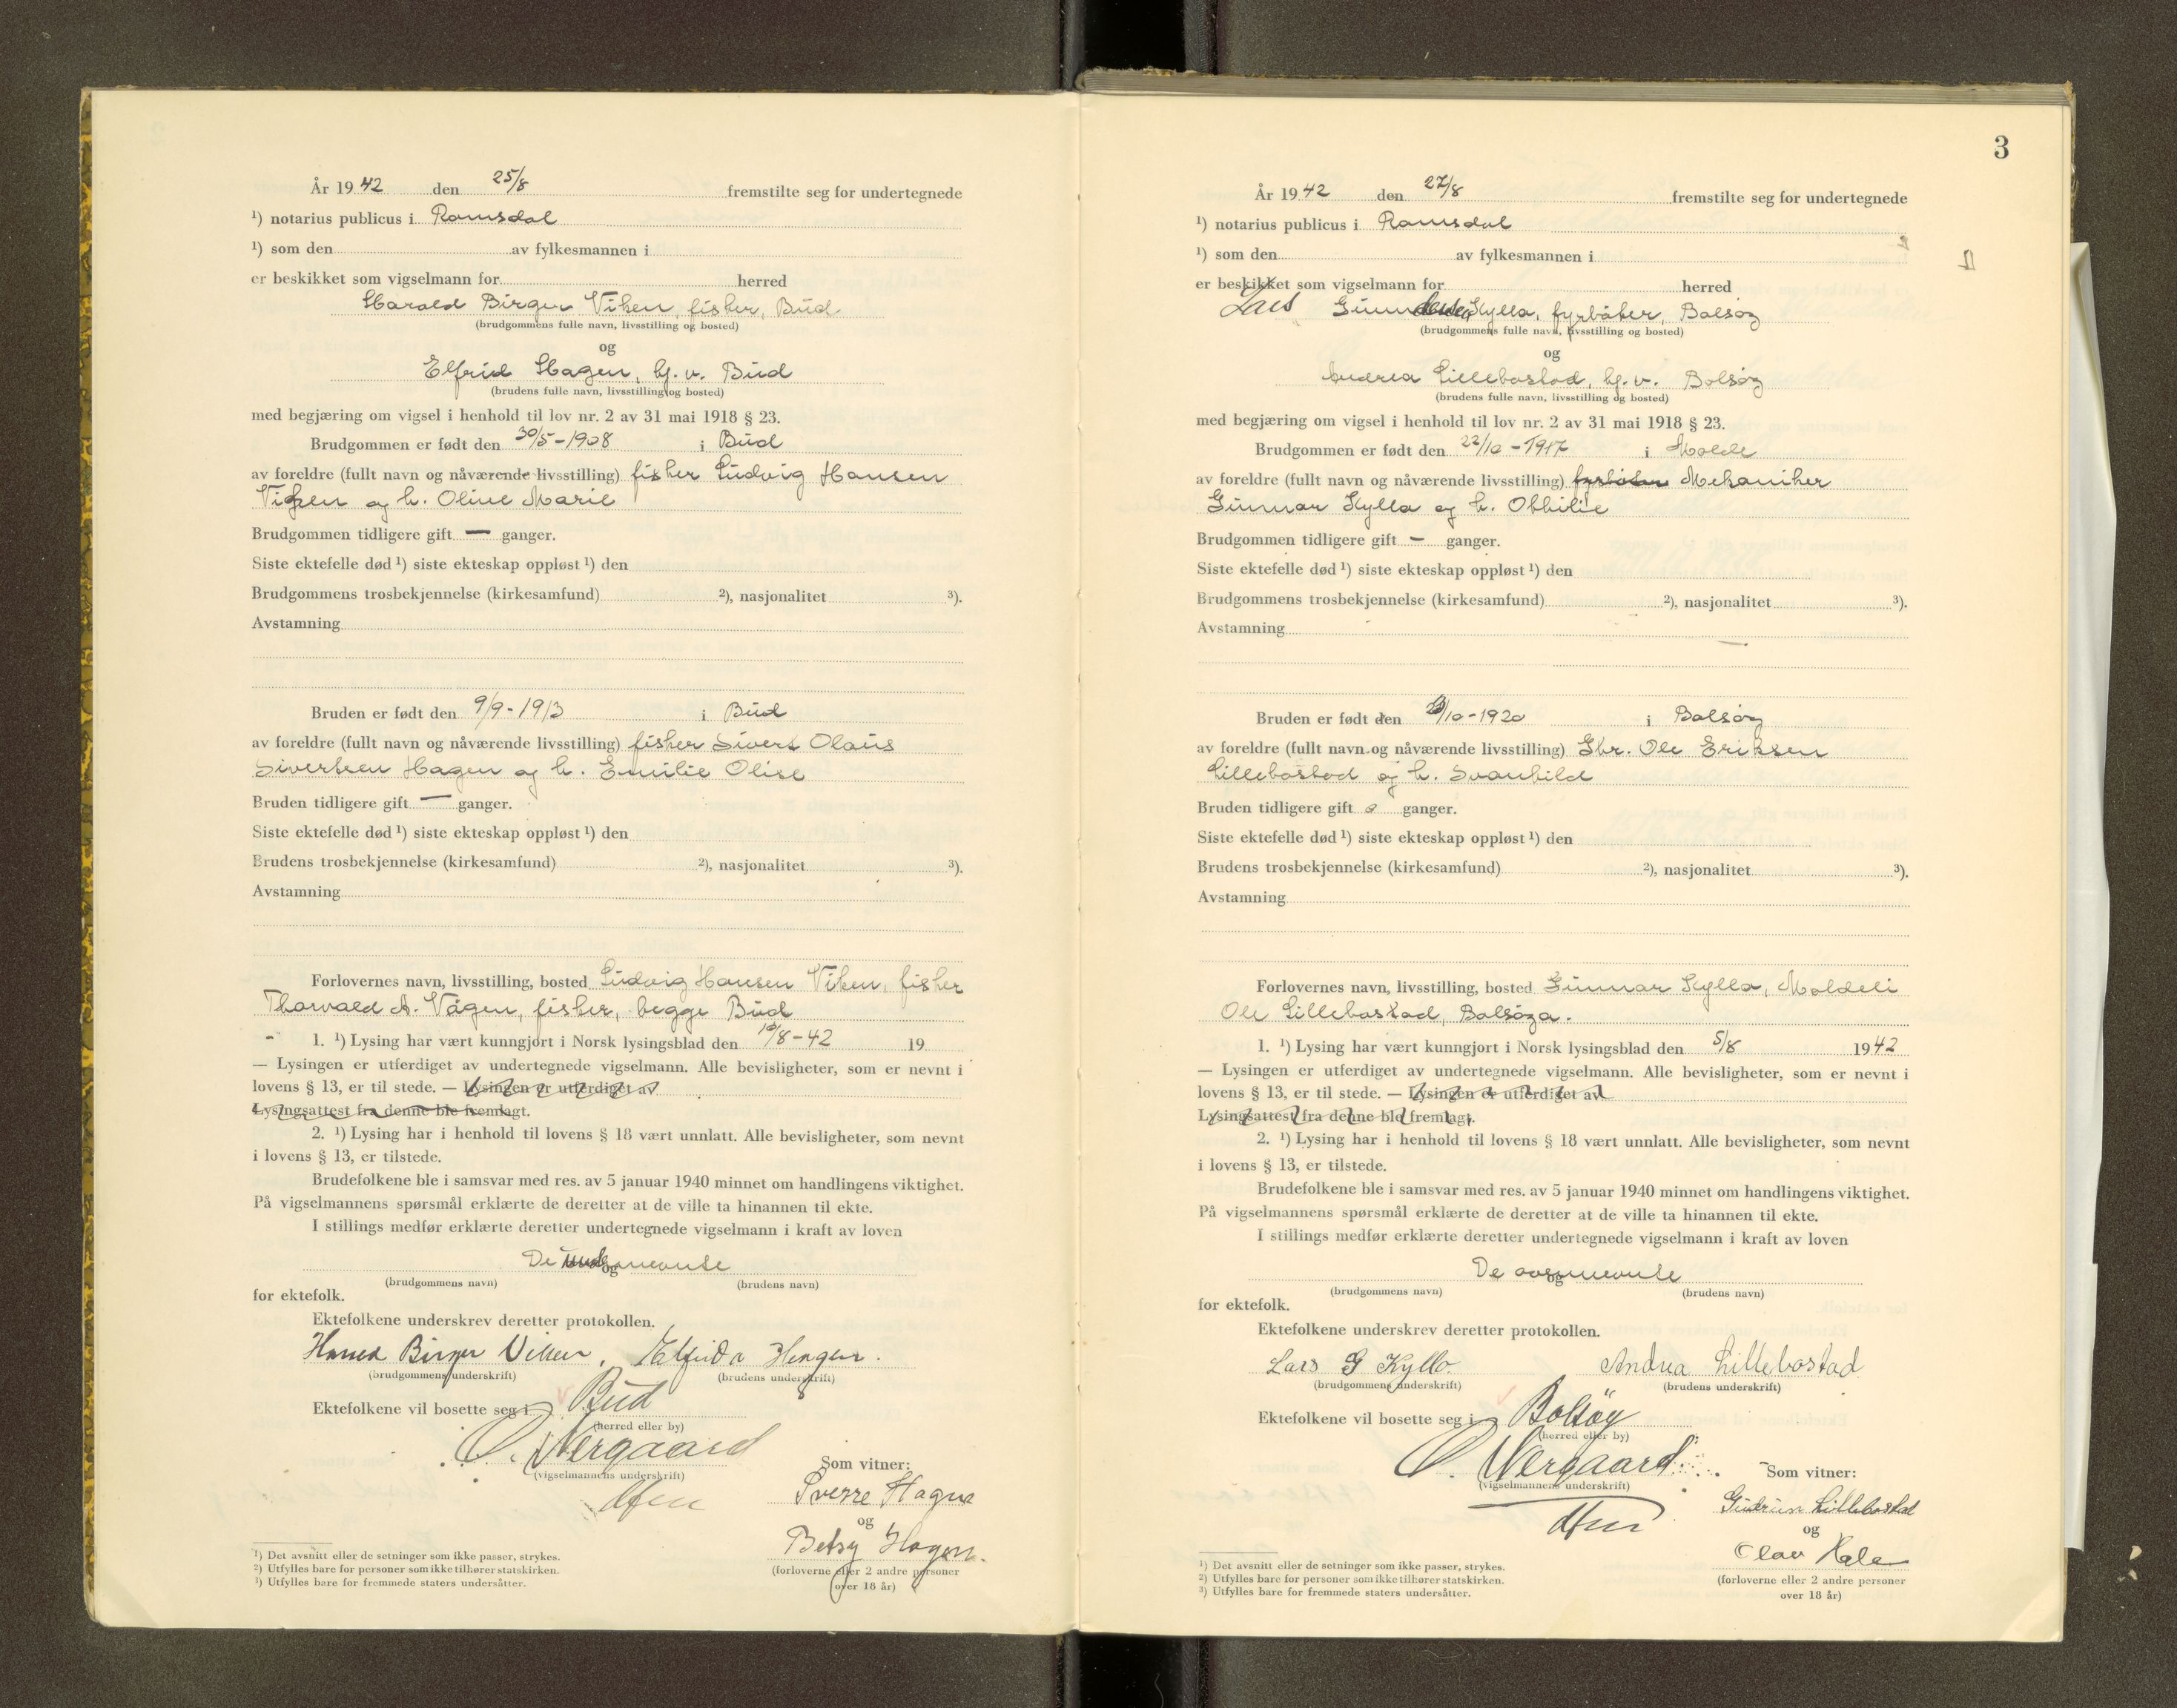 År 1942 den 25/8 fremstilte seg for undertegnede
¹) notarius publicus i Romsdal
¹) som den av fylkesmannen i
er beskikket som vigselmann for herred
Harald Birger Viken, fisker, Bud
(brudgommens fulle navn, livsstilling og bosted)
og
Elfrid Hagen, hj. v. Bud
(brudens fulle navn, livsstilling og bosted)
med begjæring om vigsel i henhold til lov nr. 2 av 31 mai 1918 § 23.
Brudgommen er født den 30/5-1908 i Bud
av foreldre (fullt navn og nåværende livsstilling) fisker Ludvig Hansen
Viken og h. Oline Marie
Brudgommen tidligere gift — ganger.
Siste ektefelle død ¹) siste ekteskap oppløst ¹) den
Brudgommens trosbekjennelse (kirkesamfund) ²), nasjonalitet ³).
Avstamning
Bruden er født den 9/9-1913 i Bud
av foreldre (fullt navn og nåværende livsstilling) fisker Sivert Olaus
Sivertsen Hagen og h. Emilie Olise
Bruden tidligere gift — ganger.
Siste ektefelle død ¹) siste ekteskap oppløst ¹) den
Brudens trosbekjennelse (kirkesamfund) ²), nasjonalitet ³).
Avstamning
Forlovernes navn, livsstilling, bosted Ludvig Hansen Viken, fisker
Thorvald A. Vågen, fisker, begge Bud
1. ¹) Lysing har vært kunngjort i Norsk lysingsblad den 10/8-42 19
— Lysingen er utferdiget av undertegnede vigselmann. Alle bevisligheter, som er nevnt i
lovens § 13, er til stede. — Lysingen er utferdiget av
Lysingsattest fra denne ble fremlagt.
2. ¹) Lysing har i henhold til lovens § 18 vært unnlatt. Alle bevisligheter, som nevnt
i lovens § 13, er tilstede.
Brudefolkene ble i samsvar med res. av 5 januar 1940 minnet om handlingens viktighet.
På vigselmannens spørsmål erklærte de deretter at de ville ta hinannen til ekte.
I stillings medfør erklærte deretter undertegnede vigselmann i kraft av loven
De og nevnte
(brudgommens navn) (brudens navn)
for ektefolk.
Ektefolkene underskrev deretter protokollen.
Harald Birger Viken, Elfrida Hagen.
(brudgommens underskrift) (brudens underskrift)
Ektefolkene vil bosette seg i Bud
(herred eller by)
O. Nergaard
(vigselmannens underskrift)
Som vitner:
Sverre Hagen
og
Betsy Hagen.
(forloverne eller 2 andre personer
over 18 år)
¹) Det avsnitt eller de setninger som ikke passer, strykes.
²) Utfylles bare for personer som ikke tilhører statskirken.
³) Utfylles bare for fremmede staters undersåtter.
3
År 1942 den 27/8 fremstilte seg for undertegnede
¹) notarius publicus i Romsdal
¹) som den av fylkesmannen i
er beskikket som vigselmann for herred
Lars Gunnarsen Kyllo, fyrbøter, Bolsøy
(brudgommens fulle navn, livsstilling og bosted)
og
Andrea Lillebostad, hj. v. Bolsøy
(brudens fulle navn, livsstilling og bosted)
med begjæring om vigsel i henhold til lov nr. 2 av 31 mai 1918 § 23.
Brudgommen er født den 22/10-1917 i Molde
av foreldre (fullt navn og nåværende livsstilling) fyrbøter Mekaniker
Gunnar Kyllo og h. Othilie
Brudgommen tidligere gift — ganger.
Siste ektefelle død ¹) siste ekteskap oppløst ¹) den
Brudgommens trosbekjennelse (kirkesamfund) ²), nasjonalitet ³).
Avstamning
Bruden er født den /10-1920 i Bolsøy
av foreldre (fullt navn og nåværende livsstilling) Gbr. Ole Eriksen
Lillebostad og h. Svanhild
Bruden tidligere gift 0 ganger.
Siste ektefelle død ¹) siste ekteskap oppløst ¹) den
Brudens trosbekjennelse (kirkesamfund) ²), nasjonalitet ³).
Avstamning
Forlovernes navn, livsstilling, bosted Gunnar Kyllo, Moldeli
Ole Lillebostad, Bolsøya.
1. ¹) Lysing har vært kunngjort i Norsk lysingsblad den 5/8 1942
— Lysingen er utferdiget av undertegnede vigselmann. Alle bevisligheter, som er nevnt i
lovens § 13, er til stede. — Lysingen er utferdiget av
Lysingsattest fra denne ble fremlagt.
2. ¹) Lysing har i henhold til lovens § 18 vært unnlatt. Alle bevisligheter, som nevnt
i lovens § 13, er tilstede.
Brudefolkene ble i samsvar med res. av 5 januar 1940 minnet om handlingens viktighet.
På vigselmannens spørsmål erklærte de deretter at de ville ta hinannen til ekte.
I stillings medfør erklærte deretter undertegnede vigselmann i kraft av loven
De ovennevnte
(brudgommens navn) og (brudens navn)
for ektefolk.
Ektefolkene underskrev deretter protokollen.
Lars G Kyllo. Andrea Lillebostad
(brudgommens underskrift) (brudens underskrift)
Ektefolkene vil bosette seg i Bolsöy
(herred eller by)
O. Nergaard
(vigselmannens underskrift)
Som vitner:
Gudrun Lillebostad
og
Olav Hale
(forloverne eller 2 andre personer
over 18 år)
¹) Det avsnitt eller de setninger som ikke passer, strykes.
²) Utfylles bare for personer som ikke tilhører statskirken.
³) Utfylles bare for fremmede staters undersåtter.